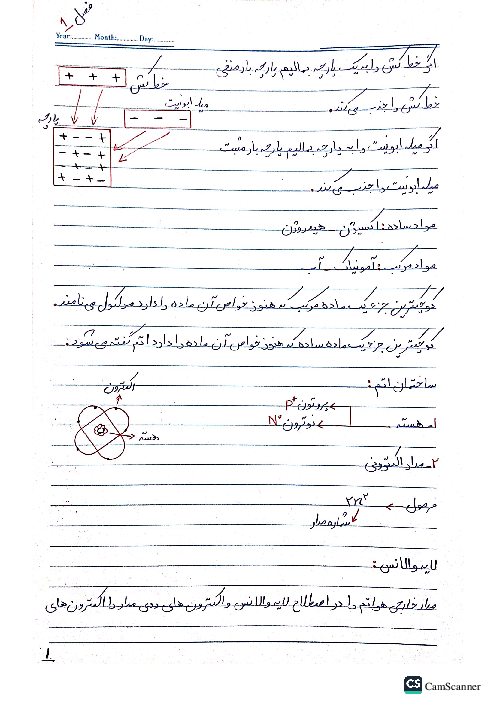 فصل 1
Year....... Month:....... Day:.......
اگر خط کش را به یک پارچه بمالیم پارچه بار منفی
خط کش را جذب می‌کند.
+ + +
خط کش
میله ابونیت
- - -
پارچه
+ - - +
- + - +
- + - +
+ - + -
اگر میله ابونیت را به پارچه بمالیم پارچه بار مثبت
میله ابونیت را جذب می‌کند.
مواد ساده: اکسیژن - هیدروژن
مواد مرکب: آمونیاک - آب
کوچکترین جزء یک ماده مرکب که هنوز خواص آن ماده را دارد مولکول می‌نامند.
کوچکترین جزء یک ماده ساده که هنوز خواص آن ماده را دارد اتم گفته می‌شود.
ساختمان اتم:
الکترون
هسته
۱- هسته
پروتون P+
نوترون N°
۲- مدار الکترونی
فرمول ← ۲n²
شماره مدار
لایه والانس:
مدار خارجی هر اتم را در اصطلاح لایه والانس و الکترون های روی مدار را الکترون های
1
CS CamScanner